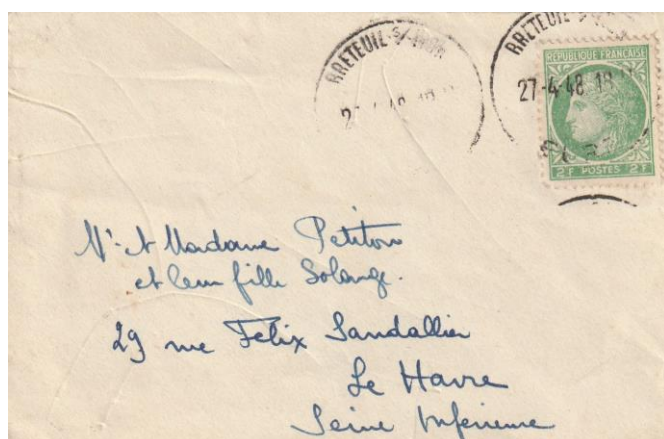 BRETEUIL S/ITON
BRETEUIL S/ITON
27-4-48 18
RÉPUBLIQUE FRANÇAISE
2F POSTES 2F
Mr et Madame Petiton
et leur fille Solange.
29 rue Felix Sandallier
Le Havre
Seine Inferieure